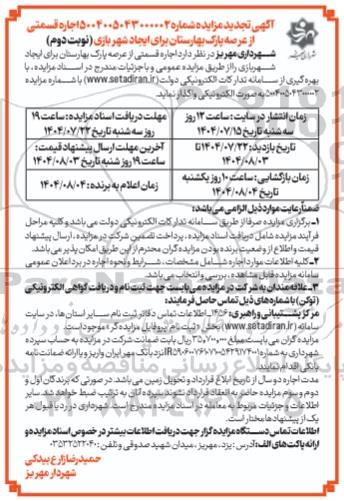 آگهی تجدید مزایده شماره ۵۰۰۴۰۰۵۰۴۳۰۰۰۰۰۲ اجاره قسمتی
از عرصه پارک بهارستان برای ایجاد شهر بازی (نوبت دوم)
شهرداری مهریز در نظر دارد اجاره قسمتی از عرصه پارک بهارستان برای ایجاد
شهربازی را از طریق مزایده عمومی و با جزئیات مندرج در اسناد مزایده، با
بهره گیری از سامانه تدارکات الکترونیکی دولت (www.setadiran.ir) با شماره مزایده
۵۰۰۴۰۰۵۰۴۳۰۰۰۰۰۲ به صورت الکترونیکی واگذار نماید.
زمان انتشار در سایت: ساعت ۱۲ روز
سه شنبه تاریخ ۱۴۰۴/۰۷/۱۵
مهلت دریافت اسناد مزایده: ساعت ۱۹
روز سه شنبه تاریخ ۱۴۰۴/۰۷/۲۲
تاریخ بازدید: ۱۴۰۴/۰۷/۲۲ تا
۱۴۰۴/۰۸/۰۳
آخرین مهلت ارسال پیشنهاد قیمت:
ساعت ۱۹ روز شنبه تاریخ ۱۴۰۴/۰۸/۰۳
زمان بازگشایی: ساعت ۱۰ روز یکشنبه
تاریخ ۱۴۰۴/۰۸/۰۴
زمان اعلام به برنده: ۱۴۰۴/۰۸/۰۴
ضمناً رعایت موارد ذیل الزامی می باشد:
۱- برگزاری مزایده صرفا از طریق سامانه تدارکات الکترونیکی دولت می باشد و کلیه مراحل
فرآیند مزایده شامل دریافت اسناد مزایده، پرداخت تضمین شرکت در مزایده، ارسال پیشنهاد
قیمت و اطلاع از وضعیت برنده بودن مزایده گران محترم از این طریق امکان پذیر می باشد.
۲- کلیه اطلاعات موارد اجاره شامل مشخصات، شرایط و نحوه اجاره در برد اعلان عمومی
سامانه مزایده قابل مشاهده، بررسی و انتخاب می باشد.
۳- علاقه مندان به شرکت در مزایده می بایست جهت ثبت نام و دریافت گواهی الکترونیکی
(توکن) با شماره های ذیل تماس حاصل فرمایند:
مرکز پشتیبانی و راهبری: ۱۴۵۶ اطلاعات تماس دفاتر ثبت نام سایر استان ها، در سایت
سامانه (www.setadiran.ir) بخش «ثبت نام/پروفایل مزایده گر» موجود است.
مزایده گران می بایست مبلغ ریال بابت ضمانت شرکت در مزایده به حساب سپرده
شهرداری به شماره نزد بانک مهر ایران واریز و یا ارائه ضمانت نامه
بانکی اقدام نمایند.
مدت اجاره دو سال از تاریخ ابلاغ قرارداد و تحویل زمین می باشد. در صورتی که برندگان اول و
دوم و سوم مزایده حاضر به انعقاد قرارداد نشوند سپرده آنان به ترتیب ضبط خواهد شد. سایر
اطلاعات و جزئیات مربوط به معامله در اسناد مزایده مندرج است. شهرداری در رد یا قبول هر
یک از پیشنهادها مختار است.
اطلاعات تماس دستگاه مزایده گزار جهت دریافت اطلاعات بیشتر در خصوص اسناد مزایده و
ارائه پاکت های الف: آدرس: یزد، مهریز، میدان شهید صدوقی و تلفن: ۰۳۵۳۲۵۲۲۰۴۰
حمیدرضا زارع بیدکی
شهردار مهریز